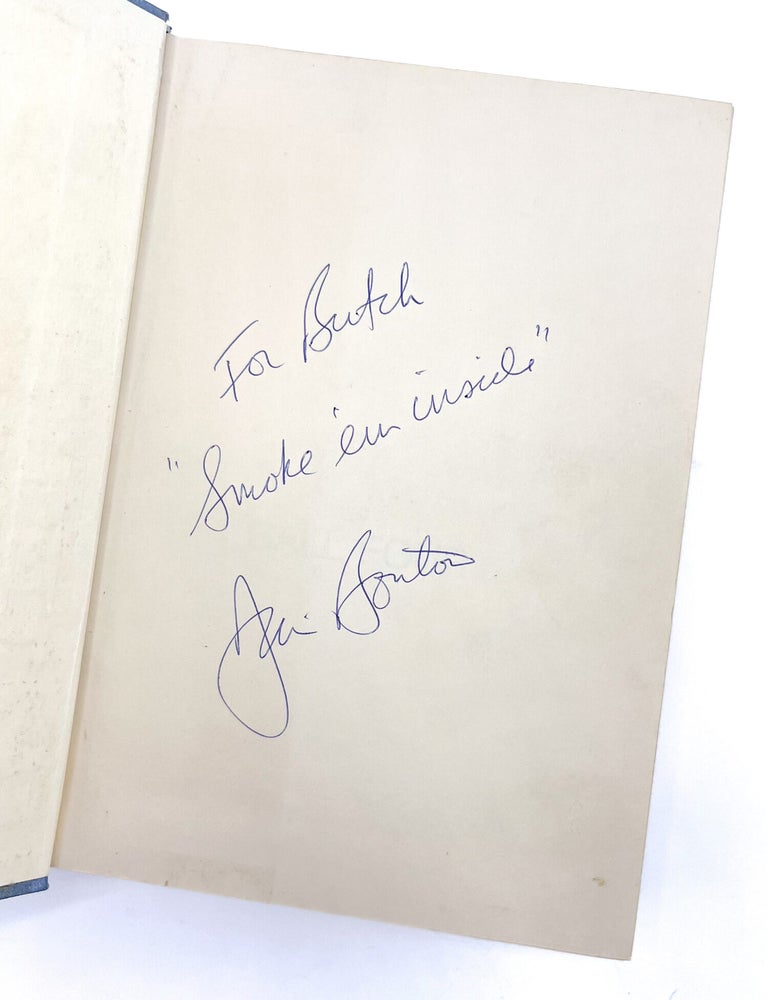 For Butch
"Smoke 'em inside"
Jim Bouton